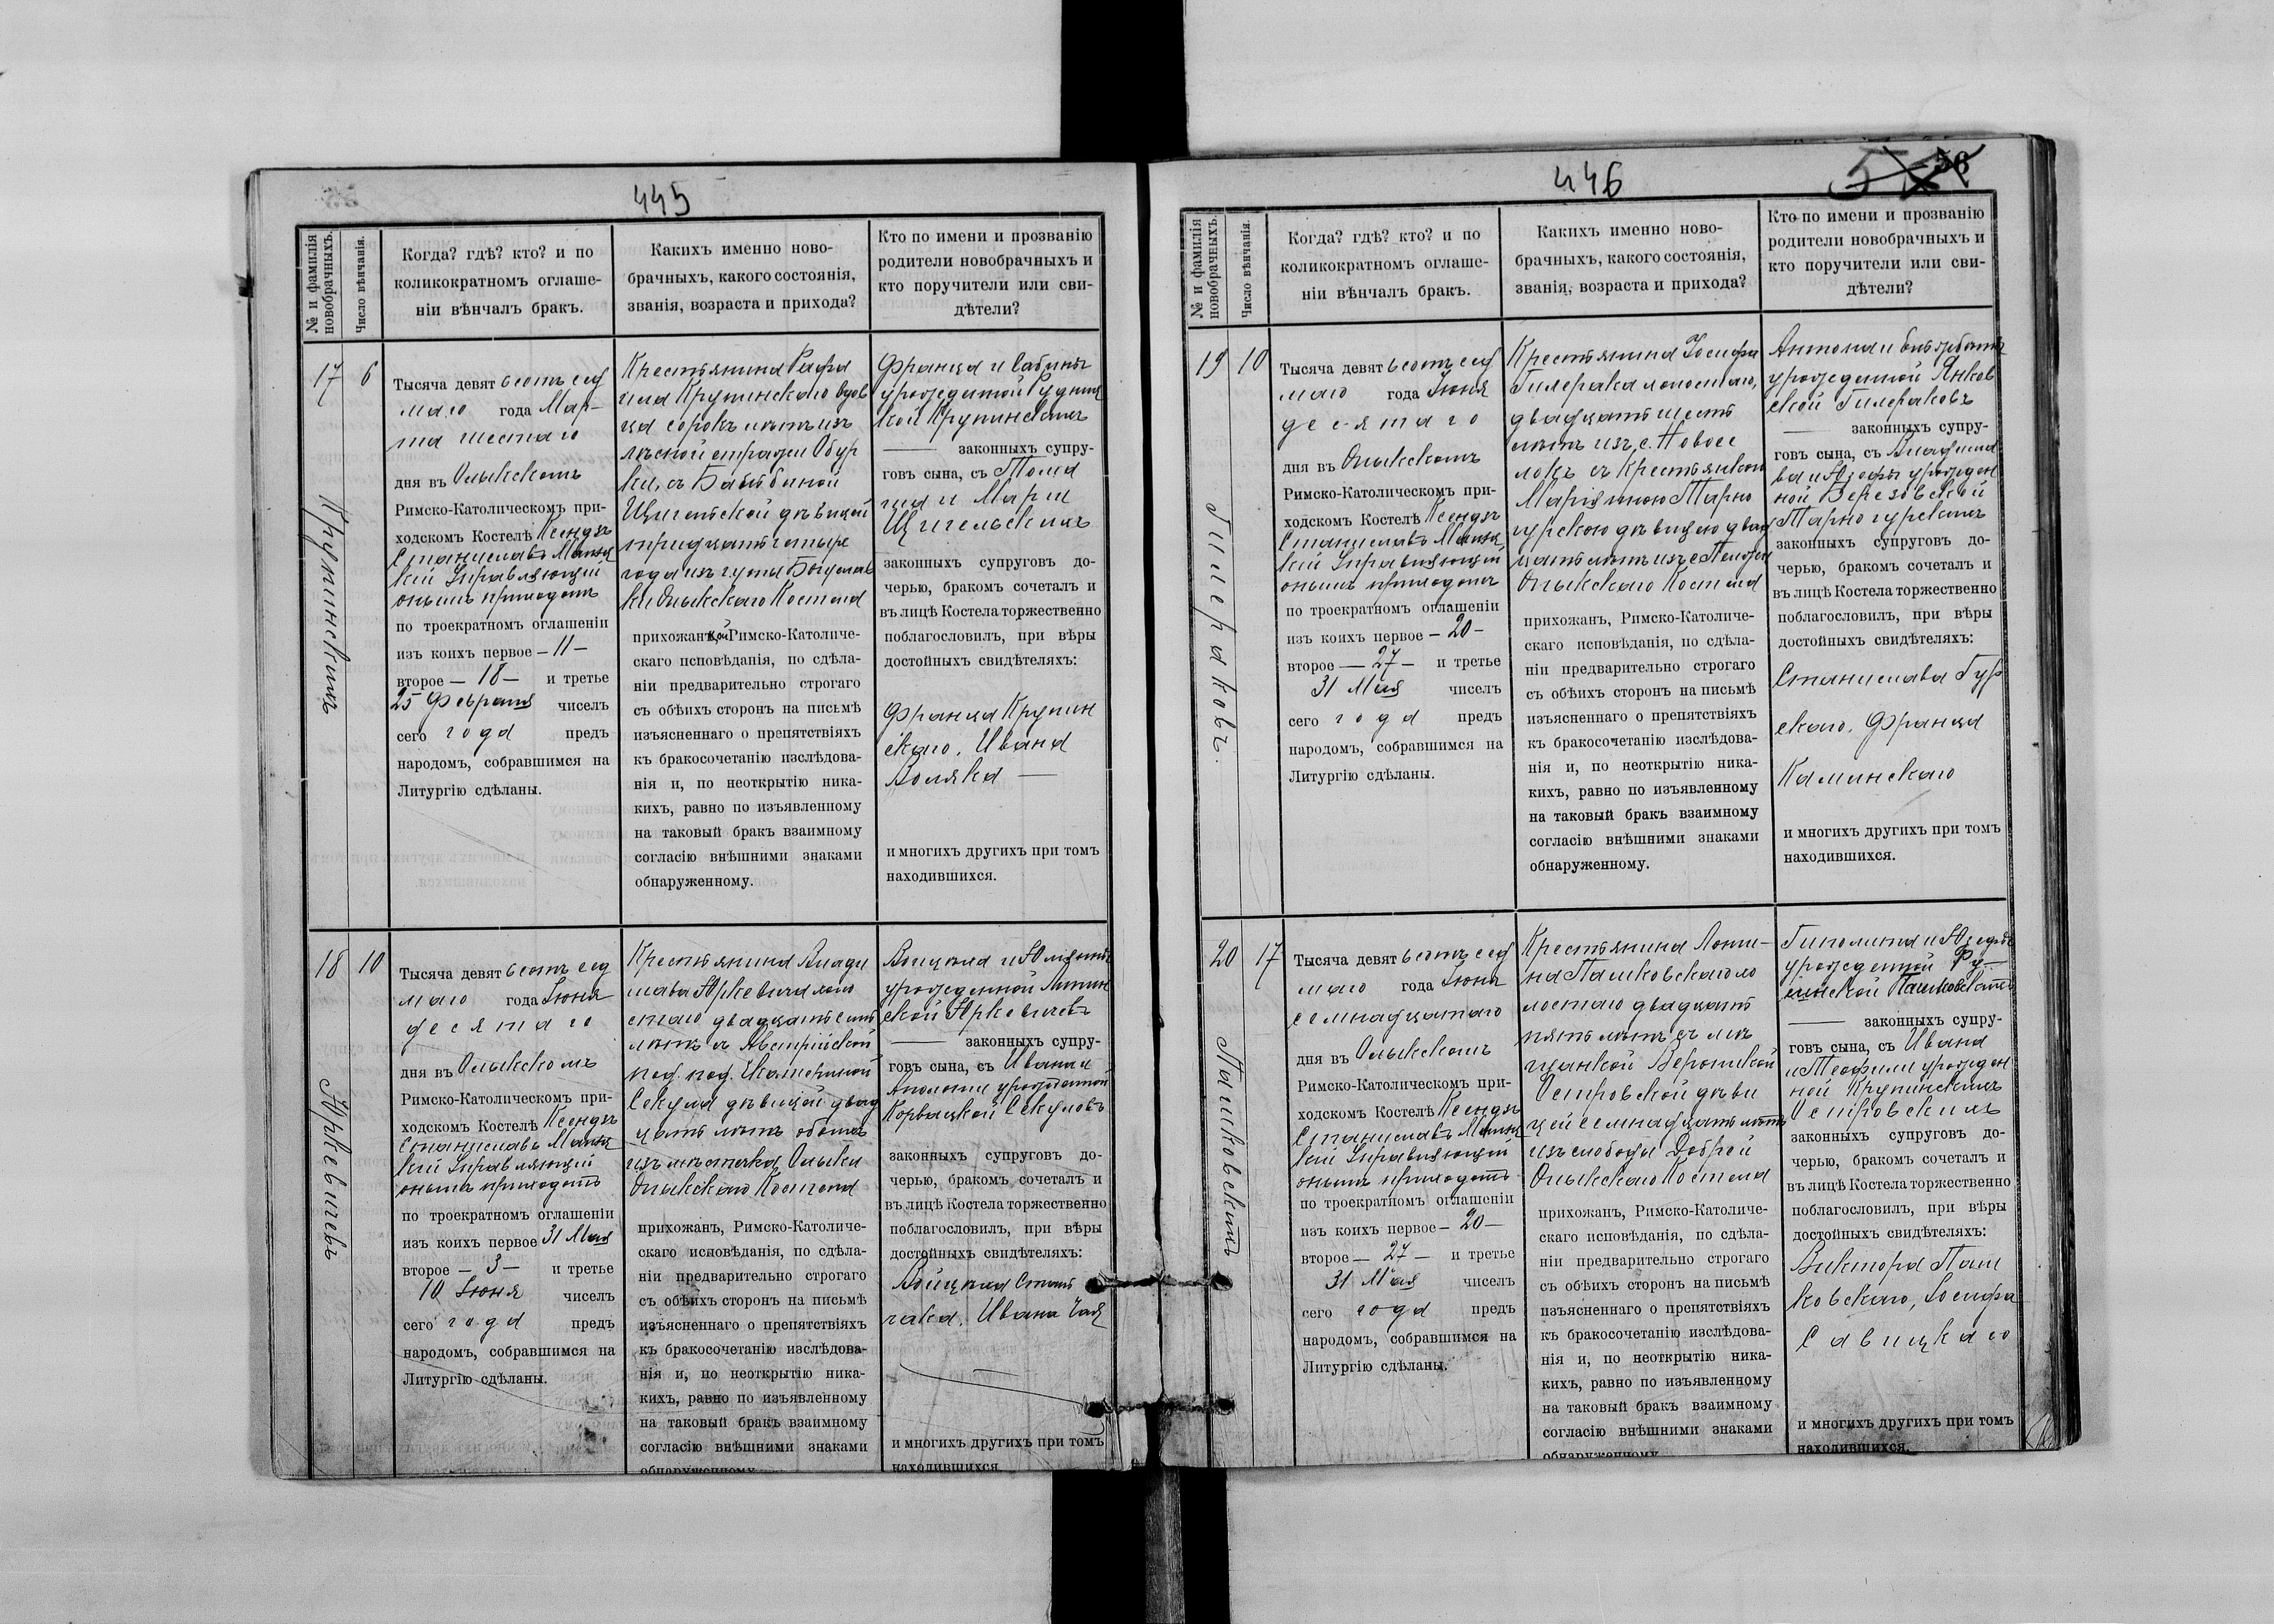 445
№ и фамилія новобрачныхъ.
Число вѣнчанія.
Когда? гдѣ? кто? и по
коликократномъ оглаше-
ніи вѣнчалъ бракъ.
Какихъ именно ново-
брачныхъ, какого состоянія,
званія, возраста и прихода?
Кто по имени и прозванію
родители новобрачныхъ и
кто поручители или сви-
дѣтели?
17
6
Крупинскихъ
Тысяча девятьсотъ сед
маго года Мар-
та шестаго
дня въ Олыкскомъ
Римско-Католическомъ при-
ходскомъ Костелѣ Ксендзъ
Станиславъ
Управляющій
онымъ приходомъ
по троекратномъ оглашеніи
изъ коихъ первое — 11 —
второе — 18 — и третье
25 Февраля чиселъ
сего года предъ
народомъ, собравшимся на
Литургію сдѣланы.
Крестьянина Рафа
ила Крупинскаго вдов
ца сорокъ лѣтъ изъ
лѣсной стражи Обур
ки, съ
дѣвицей
тридцать четыре
года изъ гуты Богуслав
ки Олыкскаго Костела
прихожанкой Римско-Католиче-
скаго исповѣданія, по сдѣла-
ніи предварительно строгаго
съ обѣихъ сторонъ на письмѣ
изъясненнаго о препятствіяхъ
къ бракосочетанію изслѣдова-
нія и, по неоткрытію ника-
кихъ, равно по изъявленному
на таковый бракъ взаимному
согласію внѣшними знаками
обнаруженному.
Франца и Сабины
урожденной Рудниц
кой Крупинскихъ
— законныхъ супру-
говъ сына, съ Фомы
и Маріи
Щигельскихъ
законныхъ супруговъ до-
черью, бракомъ сочеталъ и
въ лицѣ Костела торжественно
поблагословилъ, при вѣры
достойныхъ свидѣтеляхъ:
Франца Крупин
скаго, Ивана
Воляка —
и многихъ другихъ при томъ
находившихся.
18
10
Юркевичевъ
Тысяча девятьсотъ сед
маго года Іюня
десятаго
дня въ Олыкскомъ
Римско-Католическомъ при-
ходскомъ Костелѣ Ксендзъ
Станиславъ
Управляющій
онымъ приходомъ
по троекратномъ оглашеніи
изъ коихъ первое 31 Мая
второе — 3 — и третье
10 Іюня чиселъ
сего года предъ
народомъ, собравшимся на
Литургію сдѣланы.
Крестьянина Влади
слава Юркевича холо
стаго двадцать семь
лѣтъ съ Австрійской
под. под. Екатериной
Секула дѣвицей двад
цать лѣтъ обоихъ
изъ мѣстечка Олыки
Олыкскаго Костела
прихожанъ, Римско-Католиче-
скаго исповѣданія, по сдѣла-
ніи предварительно строгаго
съ обѣихъ сторонъ на письмѣ
изъясненнаго о препятствіяхъ
къ бракосочетанію изслѣдова-
нія и, по неоткрытію ника-
кихъ, равно по изъявленному
на таковый бракъ взаимному
согласію внѣшними знаками
обнаруженному
Войцѣха и
урожденной
Юркевичевъ
— законныхъ супру-
говъ сына, съ Ивана и
Аполоніи урожденной
Корвацкой Секуловъ
законныхъ супруговъ до-
черью, бракомъ сочеталъ и
въ лицѣ Костела торжественно
поблагословилъ, при вѣры
достойныхъ свидѣтеляхъ:
Войцѣха
Ивана
и многихъ другихъ при томъ
находившихся.
446
56
№ и фамилія новобрачныхъ.
Число вѣнчанія.
Когда? гдѣ? кто? и по
коликократномъ оглаше-
ніи вѣнчалъ бракъ.
Какихъ именно ново-
брачныхъ, какого состоянія,
званія, возраста и прихода?
Кто по имени и прозванію
родители новобрачныхъ и
кто поручители или сви-
дѣтели?
19
10
Гилераковъ
Тысяча девятьсотъ сед
маго года Іюня
десятаго
дня въ Олыкскомъ
Римско-Католическомъ при-
ходскомъ Костелѣ Ксендзъ
Станиславъ
Управляющій
онымъ приходомъ
по троекратномъ оглашеніи
изъ коихъ первое — 20 —
второе — 27 — и третье
31 Мая чиселъ
сего года предъ
народомъ, собравшимся на
Литургію сдѣланы.
Крестьянина Іосифа
Гилерака холостаго,
двадцать шесть
лѣтъ изъ с. Новосе
локъ съ крестьянкою
Маріянною Тарно
гурскою дѣвицею двад
цать лѣтъ изъ с.
Олыкскаго Костела
прихожанъ, Римско-Католиче-
скаго исповѣданія, по сдѣла-
ніи предварительно строгаго
съ обѣихъ сторонъ на письмѣ
изъясненнаго о препятствіяхъ
къ бракосочетанію изслѣдова-
нія и, по неоткрытію ника-
кихъ, равно по изъявленному
на таковый бракъ взаимному
согласію внѣшними знаками
обнаруженному.
Антона и
урожденной Янков
ской Гилераковъ
— законныхъ супру-
говъ сына, съ Владисла
ва и Юзефы урожден
ной Березовской
Тарногурскихъ
законныхъ супруговъ до-
черью, бракомъ сочеталъ и
въ лицѣ Костела торжественно
поблагословилъ, при вѣры
достойныхъ свидѣтеляхъ:
Станислава Гур
скаго, Франца
Калинскаго
и многихъ другихъ при томъ
находившихся.
20
17
Пашковскихъ
Тысяча девятьсотъ сед
маго года Іюня
семнадцатаго
дня въ Олыкскомъ
Римско-Католическомъ при-
ходскомъ Костелѣ Ксендзъ
Станиславъ
Управляющій
онымъ приходомъ
по троекратномъ оглашеніи
изъ коихъ первое — 20 —
второе — 27 — и третье
31 Мая чиселъ
сего года предъ
народомъ, собравшимся на
Литургію сдѣланы.
Крестьянина Лонги-
на Пашковскаго хо
лостаго двадцать
пять лѣтъ съ мѣ
щанкой Вероникой
Островской дѣви
цей семнадцать лѣтъ
изъ слободы Доброй
Олыкскаго Костела
прихожанъ, Римско-Католиче-
скаго исповѣданія, по сдѣла-
ніи предварительно строгаго
съ обѣихъ сторонъ на письмѣ
изъясненнаго о препятствіяхъ
къ бракосочетанію изслѣдова-
нія и, по неоткрытію ника-
кихъ, равно по изъявленному
на таковый бракъ взаимному
согласію внѣшними знаками
обнаруженному
Гиполита и Юзефы
урожденной
Пашковскихъ
— законныхъ супру-
говъ сына, съ Ивана
и Теофили урожден
ной Крупинскихъ
Островскихъ
законныхъ супруговъ до-
черью, бракомъ сочеталъ и
въ лицѣ Костела торжественно
поблагословилъ, при вѣры
достойныхъ свидѣтеляхъ:
Виктора Паш
ковскаго, Іосифа
Савицкаго
и многихъ другихъ при томъ
находившихся.